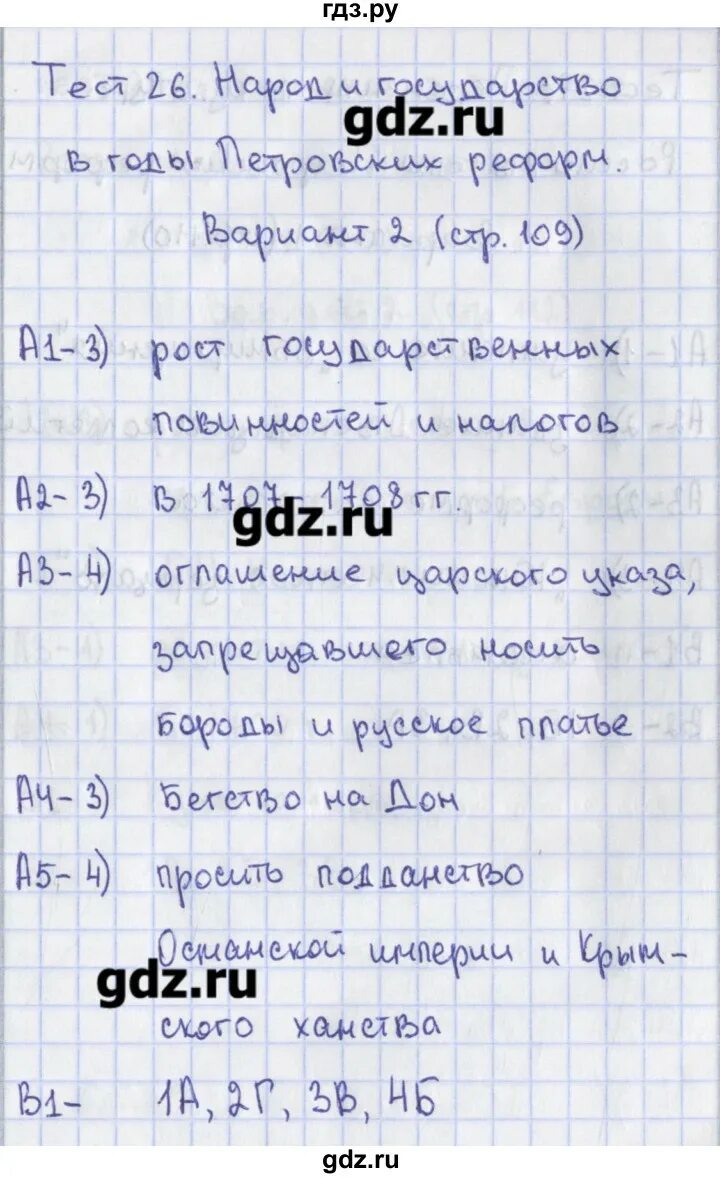 гдз.ру
Тест 26. Народ и государство
gdz.ru
в годы Петровских реформ.
Вариант 2 (стр. 109)
А1-3) рост государственных
повинностей и налогов
А2-3) в 1707-1708 гг.
gdz.ru
А3-4) оглашение царского указа,
запрещавшего носить
бороды и русское платье
А4-3) Бегство на Дон
А5-4) просить подданство
Османской империи и Крым-
gdz.ru
ского ханства
В1- 1А, 2Г, 3В, 4Б
gdz.ru